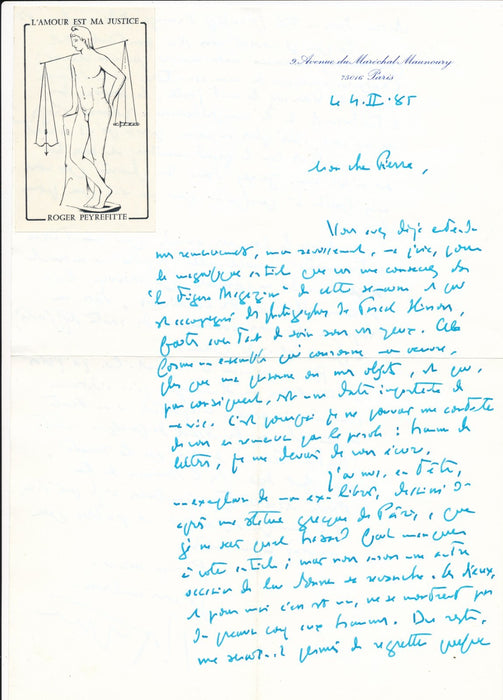 L'AMOUR EST MA JUSTICE
ROGER PEYREFITTE
9 Avenue du Maréchal Maunoury
75016 Paris
Le 4.II.85
Mon cher Pierre,
Vous avez déjà entendu
mon remerciement, mon ravissement, ma joie, pour
le magnifique article que vous me consacrez dans
"le Figaro Magazine" de cette semaine et qui
est accompagné des photographies de
faites avec tant de soin sous vos yeux. Cela
forme un ensemble qui couronne mon œuvre,
plus que ma personne ou mes objets, et qui,
par conséquent, est une date importante de
ma vie. C'est pourquoi je ne pouvais me contenter
de vous en remercier par la parole : homme de
lettres, je me devais de vous écrire.
J'ai mis, en tête,
un exemplaire de mon ex-libris, dessiné d'
après une statue grecque de Pâris, et que
je ne sais quel hasard fait manquer
à votre article ; mais nous aurons une autre
occasion de lui donner sa revanche. Les dieux,
et pour moi c'en est un, ne se montrent pas
du premier coup aux hommes. Du reste,
me serait-il permis de regretter quelque